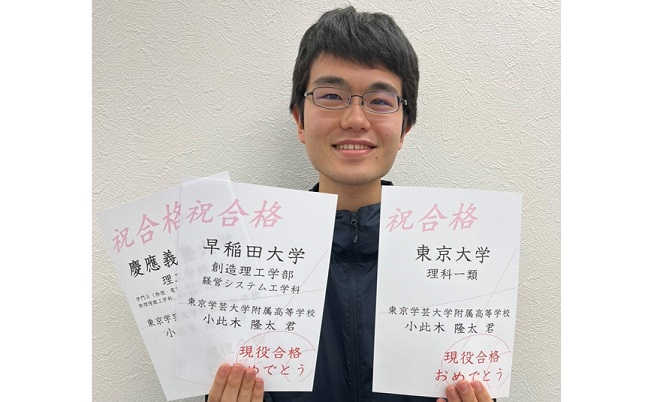 祝合格
慶應義
理工
東京学芸大学附
小此木
祝合格
早稲田大学
創造理工学部
経営システム工学科
東京学芸大学附属高等学校
小此木 隆太 君
現役合格
おめでとう
祝合格
東京大学
理科一類
東京学芸大学附属高等学校
小此木 隆太 君
現役合格
おめでとう